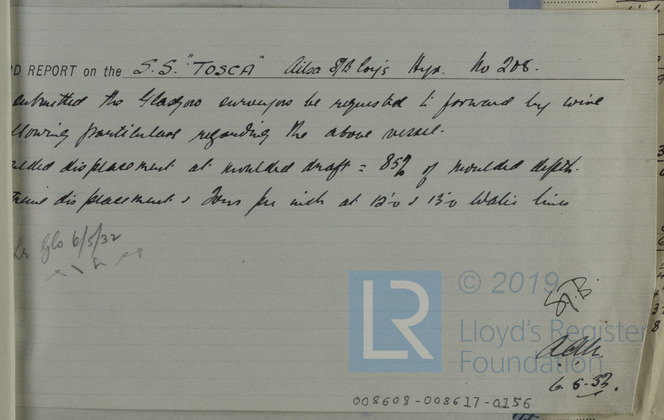 D REPORT on the S.S. "TOSCA" Ailsa S/B Coy's Hyn. No 208.
submitted the Glasgow surveyors be requested to forward by wire
llowing particulars regarding the above vessel.
ulded displacement at moulded draft = 85% of moulded depth.
treme displacement & Tons per inch at 12'0 & 13'0 Water lines
Glo 6/5/32
© 2019
LR
Lloyd's Register
Foundation
6.5.32.
008608-008617-0156